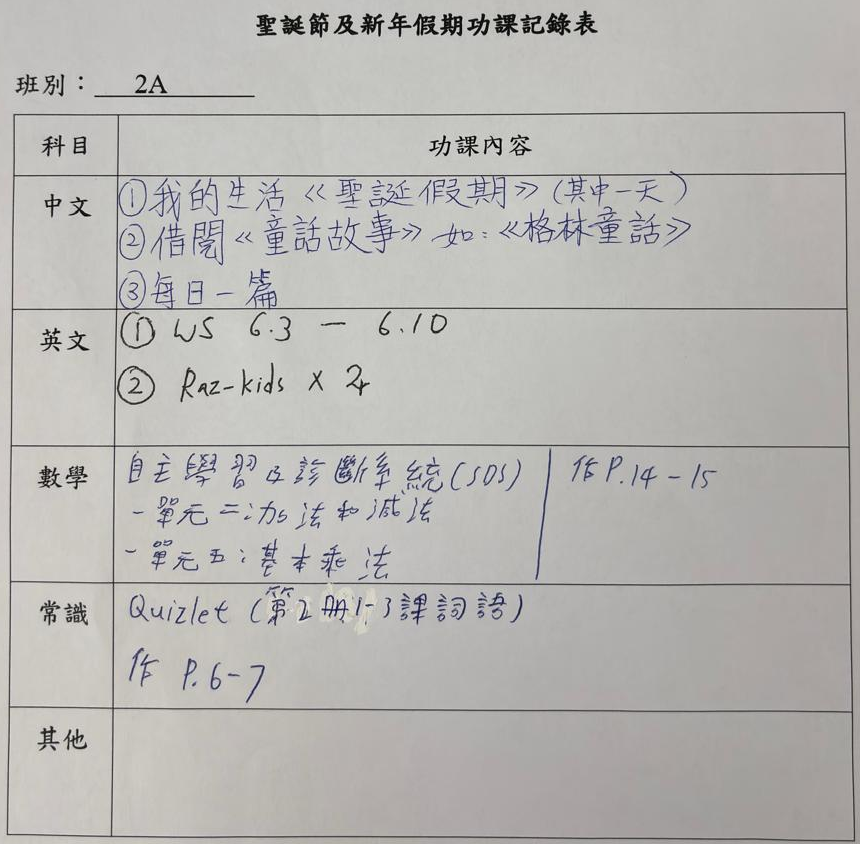 聖誕節及新年假期功課記錄表
班別：2A
科目 功課內容
中文 ①我的生活《聖誕假期》(其中一天)
②借閱《童話故事》如：《格林童話》
③每日一篇
英文 ① WS 6.3 — 6.10
② Raz-kids x 2
數學 自主學習及診斷系統(SDS) 作P.14-15
-單元二：加法和減法
-單元五：基本乘法
常識 Quizlet (第2冊1-3課詞語)
作 P.6-7
其他